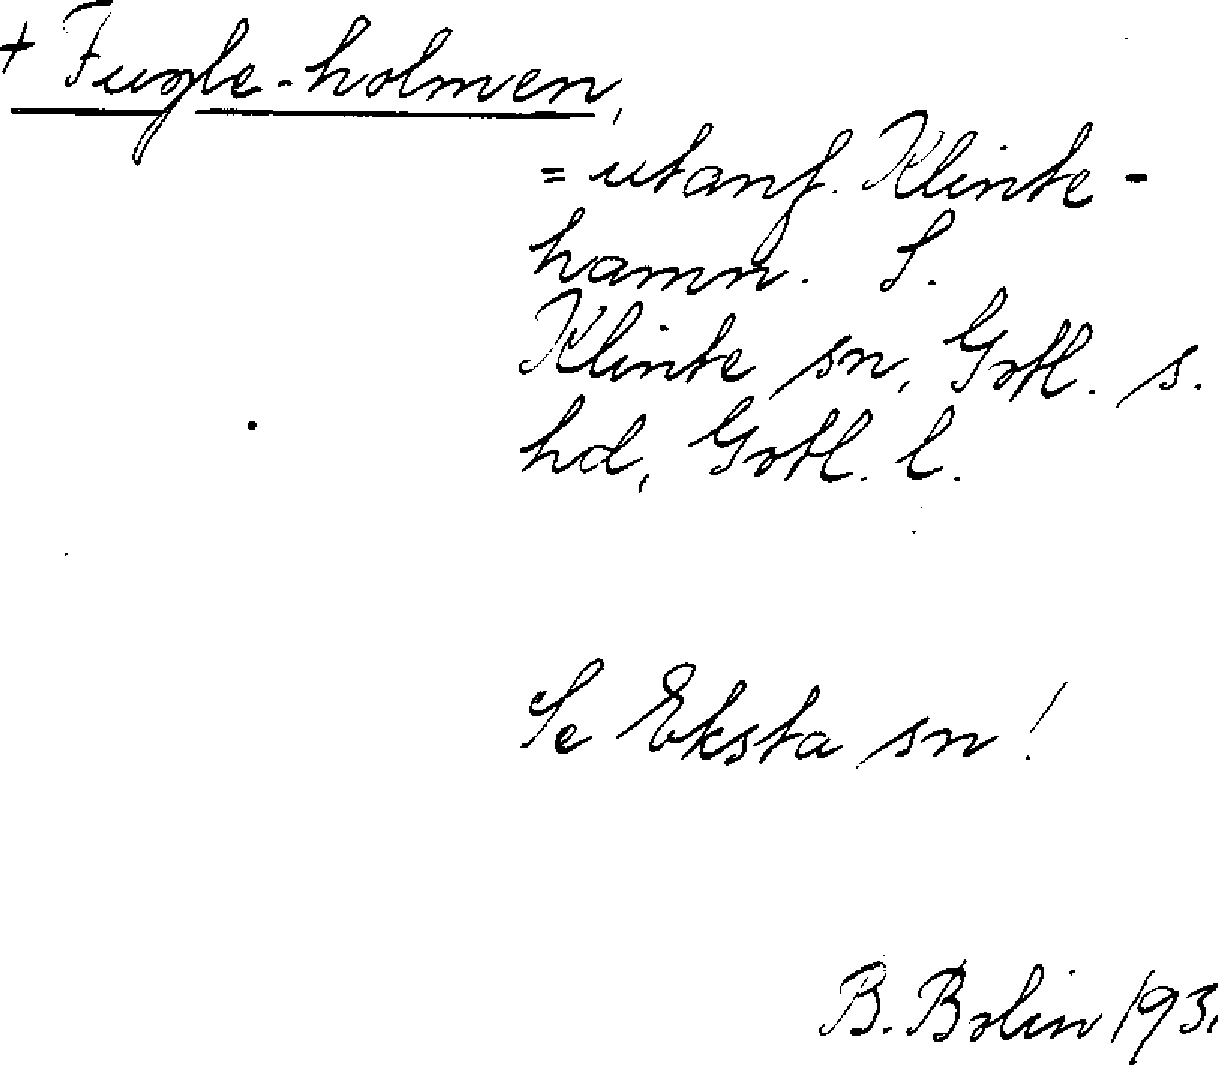 + Fugle-holmen,
= utanf. Klinte-
hamn. S.
Klinte sn, Gotl. s.
hd, Gotl. l.
Se Eksta sn!
B. Bolin 193